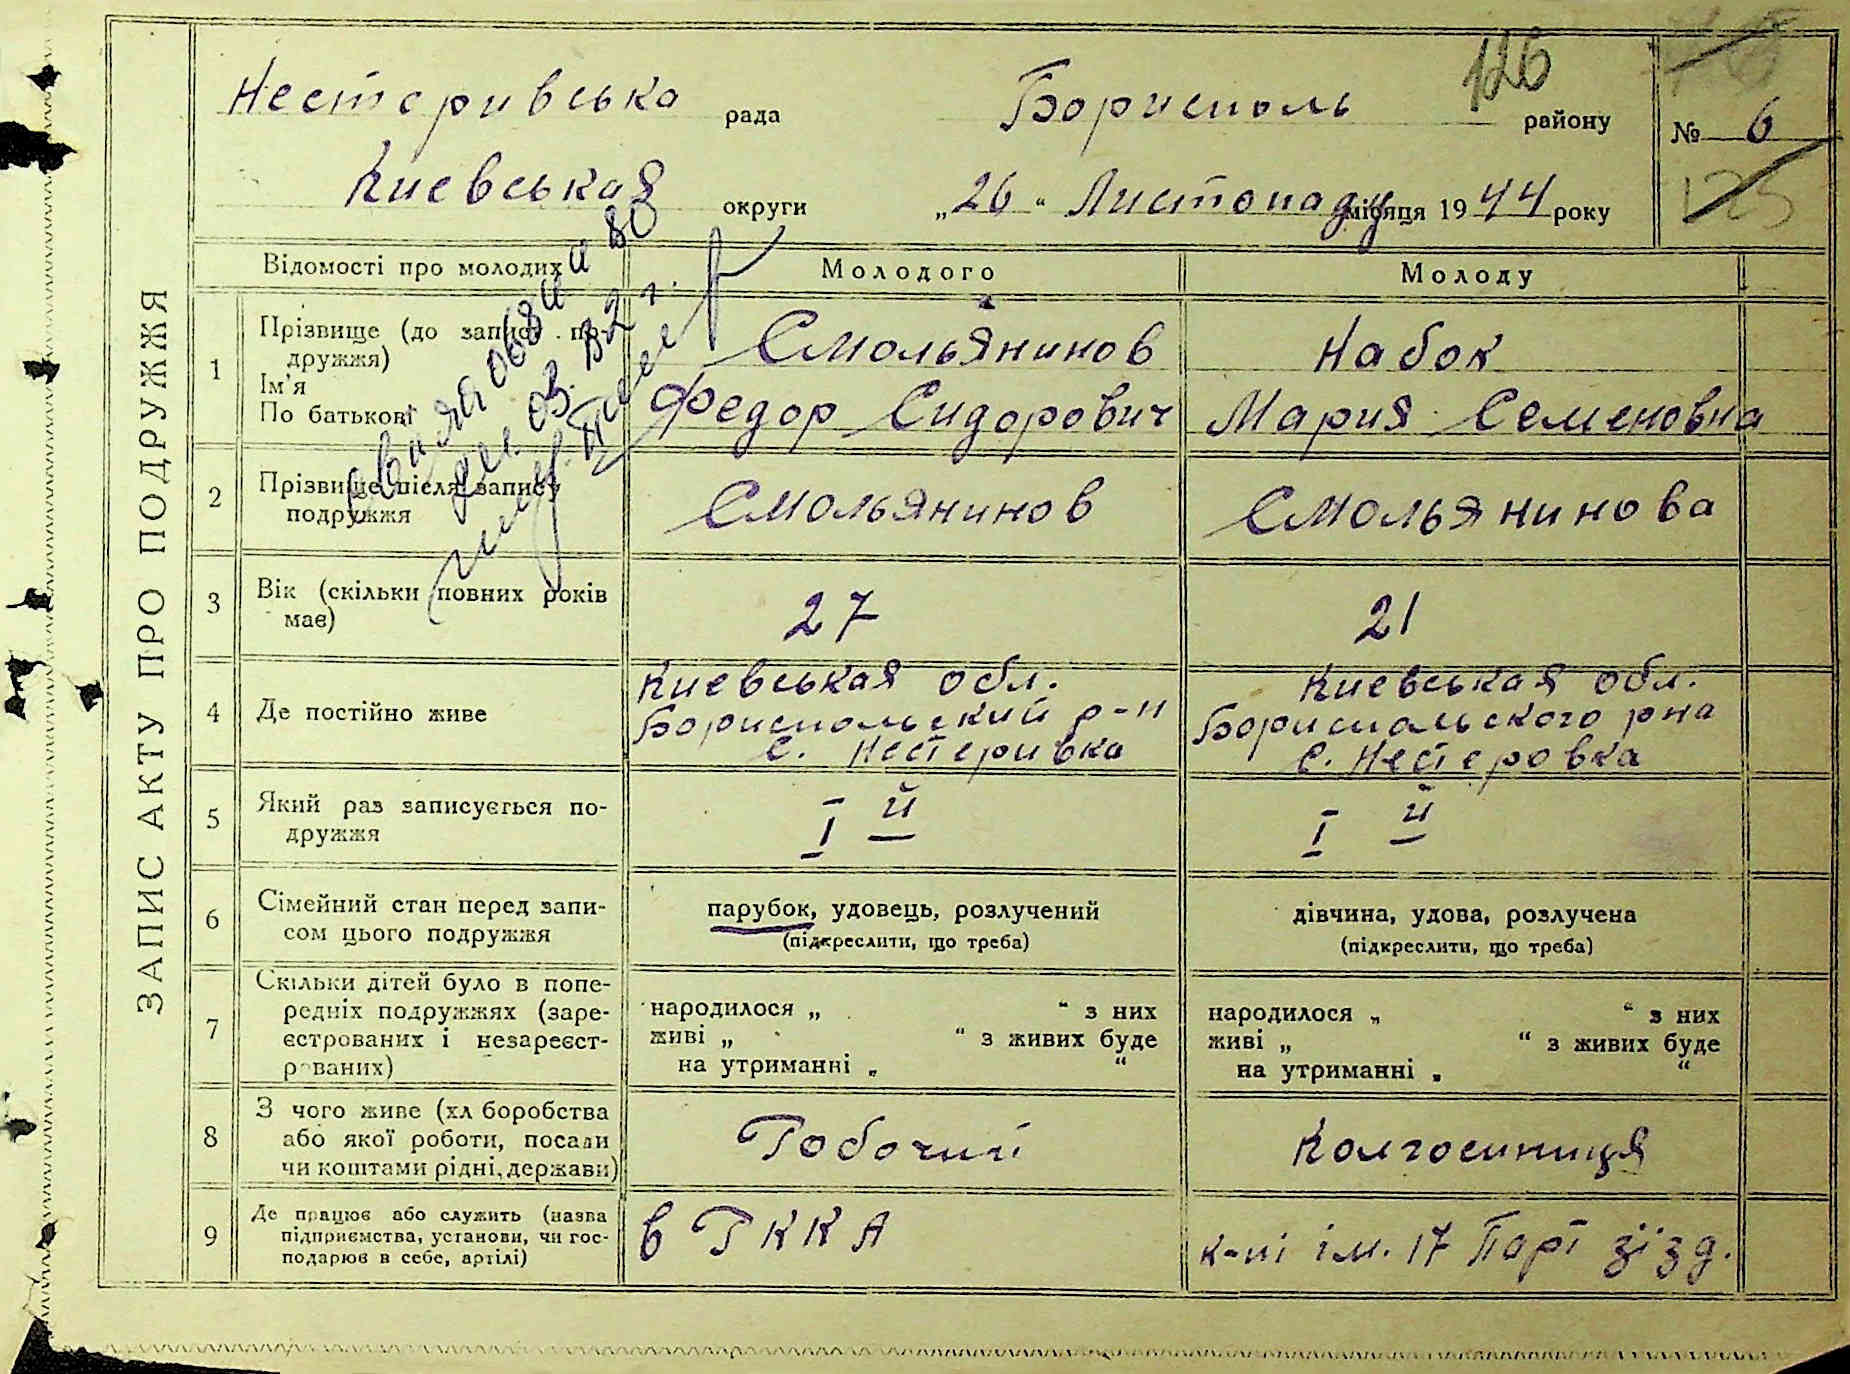 126
Нестеривська рада Борисполь району
№ 6
Киевськая округи „26“ Листопаду місяця 1944 року
125
ЗАПИС АКТУ ПРО ПОДРУЖЖЯ
Відомості про молодих Молодого Молоду
1 Прізвище (до запису по-
дружжя)
Ім'я
По батькові
Смольянинов
Федор Сидорович
Набок
Мария Семеновна
2 Прізвище після запису
подружжя
Смольянинов Смольянинова
3 Вік (скільки повних років
має)
27 21
4 Де постійно живе
Киевськая обл.
Бориспольский р-н
с. Нестеривка
Киевськая обл.
Бориспольского рна
с. Нестеровка
5 Який раз записується по-
дружжя
I й I й
6 Сімейний стан перед запи-
сом цього подружжя
парубок, удовець, розлучений
(підкреслити, що треба)
дівчина, удова, розлучена
(підкреслити, що треба)
7 Скільки дітей було в попе-
редніх подружжях (заре-
єстрованих і незареєст-
рованих)
народилося „ “ з них
живі „ “ з живих буде
на утриманні „ “
народилося „ “ з них
живі „ “ з живих буде
на утриманні „ “
8 З чого живе (хліборобства
або якої роботи, посади
чи коштами рідні, держави)
Робочий Колгоспниця
9 Де працює або служить (назва
підприємства, установи, чи гос-
подарює в себе, артілі)
в РККА
к-пі ім. 17 Парт зізд.